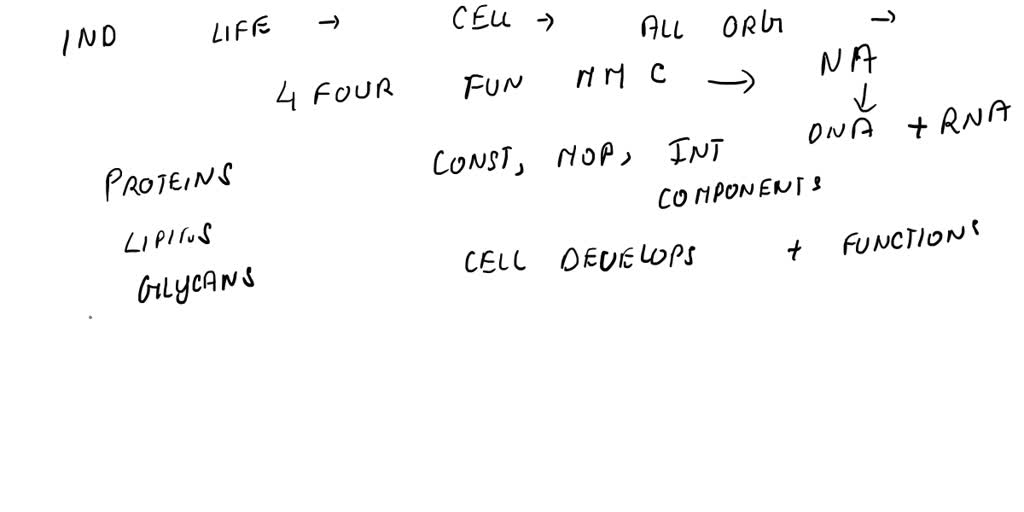 IND LIFE → CELL → ALL ORG →
4 FOUR FUN MMC → NA
↓
DNA + RNA
PROTEINS CONST, MOD, INT
COMPONENTS
LIPIDS
CELL DEVELOPS + FUNCTIONS
GLYCANS